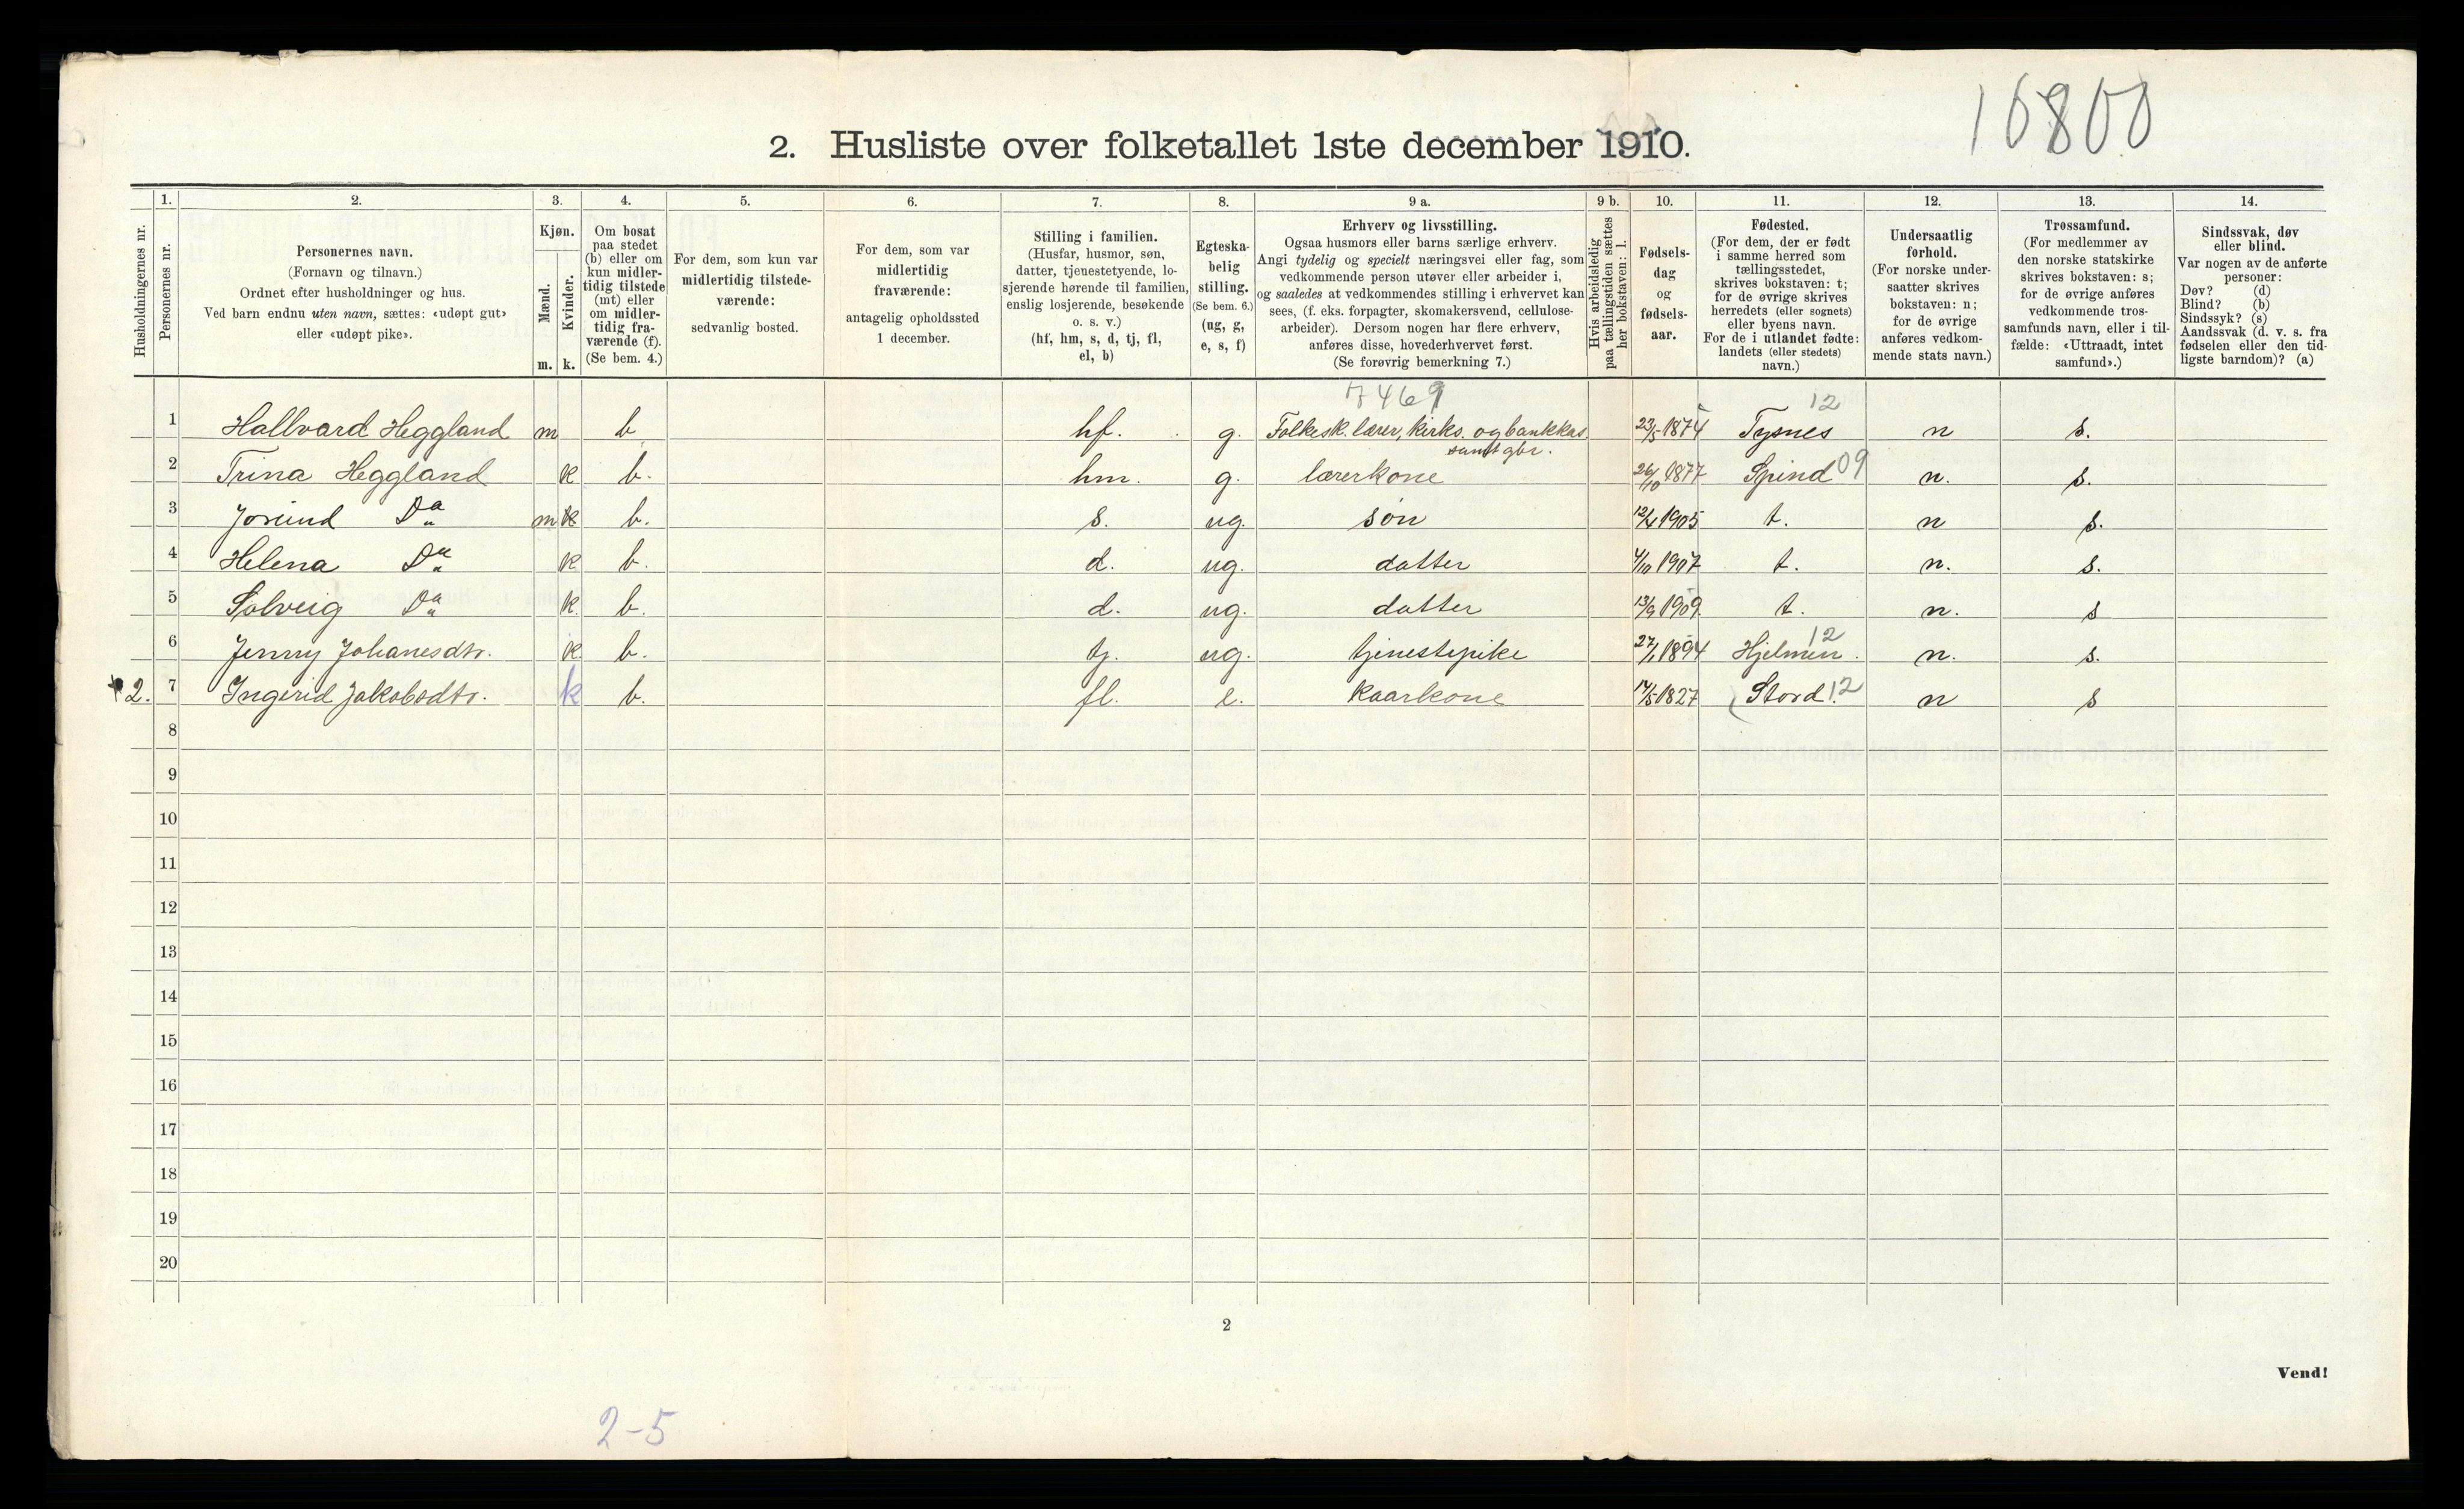 16800
2. Husliste over folketallet 1ste december 1910.
Husholdningernes nr.
1. Personernes nr.
2. Personernes navn. (Fornavn og tilnavn.) Ordnet efter husholdninger og hus. Ved barn endnu uten navn, sættes: «udøpt gut» eller «udøpt pike».
3. Kjøn. Mænd. m. Kvinder. k.
4. Om bosat paa stedet (b) eller om kun midlertidig tilstede (mt) eller om midlertidig fraværende (f). (Se bem. 4.)
5. For dem, som kun var midlertidig tilstedeværende: sedvanlig bosted.
6. For dem, som var midlertidig fraværende: antagelig opholdssted 1 december.
7. Stilling i familien. (Husfar, husmor, søn, datter, tjenestetyende, losjerende hørende til familien, enslig losjerende, besøkende o. s. v.) (hf, hm, s, d, tj, fl, el, b)
8. Egteskabelig stilling. (Se bem. 6.) (ug, g, e, s, f)
9 a. Erhverv og livsstilling. Ogsaa husmors eller barns særlige erhverv. Angi tydelig og specielt næringsvei eller fag, som vedkommende person utøver eller arbeider i, og saaledes at vedkommendes stilling i erhvervet kan sees, (f. eks. forpagter, skomakersvend, cellulosearbeider). Dersom nogen har flere erhverv, anføres disse, hovederhvervet først. (Se forøvrig bemerkning 7.)
9 b. Hvis arbeidsledig paa tællingstiden sættes her bokstaven: l.
10. Fødselsdag og fødselsaar.
11. Fødested. (For dem, der er født i samme herred som tællingsstedet, skrives bokstaven: t; for de øvrige skrives herredets (eller sognets) eller byens navn. For de i utlandet fødte: landets (eller stedets) navn.)
12. Undersaatlig forhold. (For norske undersaatter skrives bokstaven: n; for de øvrige anføres vedkommende stats navn.)
13. Trossamfund. (For medlemmer av den norske statskirke skrives bokstaven: s; for de øvrige anføres vedkommende trossamfunds navn, eller i tilfælde: «Uttraadt, intet samfund».)
14. Sindssvak, døv eller blind. Var nogen av de anførte personer: Døv? (d) Blind? (b) Sindssyk? (s) Aandssvak (d. v. s. fra fødselen eller den tidligste barndom)? (a)
7469 12
1 Hallvard Heggland m b hf. g. Folkesk. lærer, kirks. og bankkas. 23/5 1874 Tysnes n s.
samt gbr.
2 Trina Heggland k b. hm. g. lærerkone 26/10 1877 Spind 09 n. s.
3 Jorund Do m k b. s. ug. søn 12/4 1905 t. n s.
4 Helena Do k b. d. ug. datter 4/10 1907 t. n. s.
5 Solveig Do k. b. d. ug. datter 13/9 1909. t. n. s
6 Jenny Johanesdtr. k. b. tj. ug. tjenestepike 27/1 1894 Hjelmen. 12 n. s.
2. 7 Ingerid Jakobsdtr. k b. fl. e. kaarkone 14/5 1827 Stord. 12 n s
8
9
10
11
12
13
14
15
16
17
18
19
20
2
Vend!
2-5